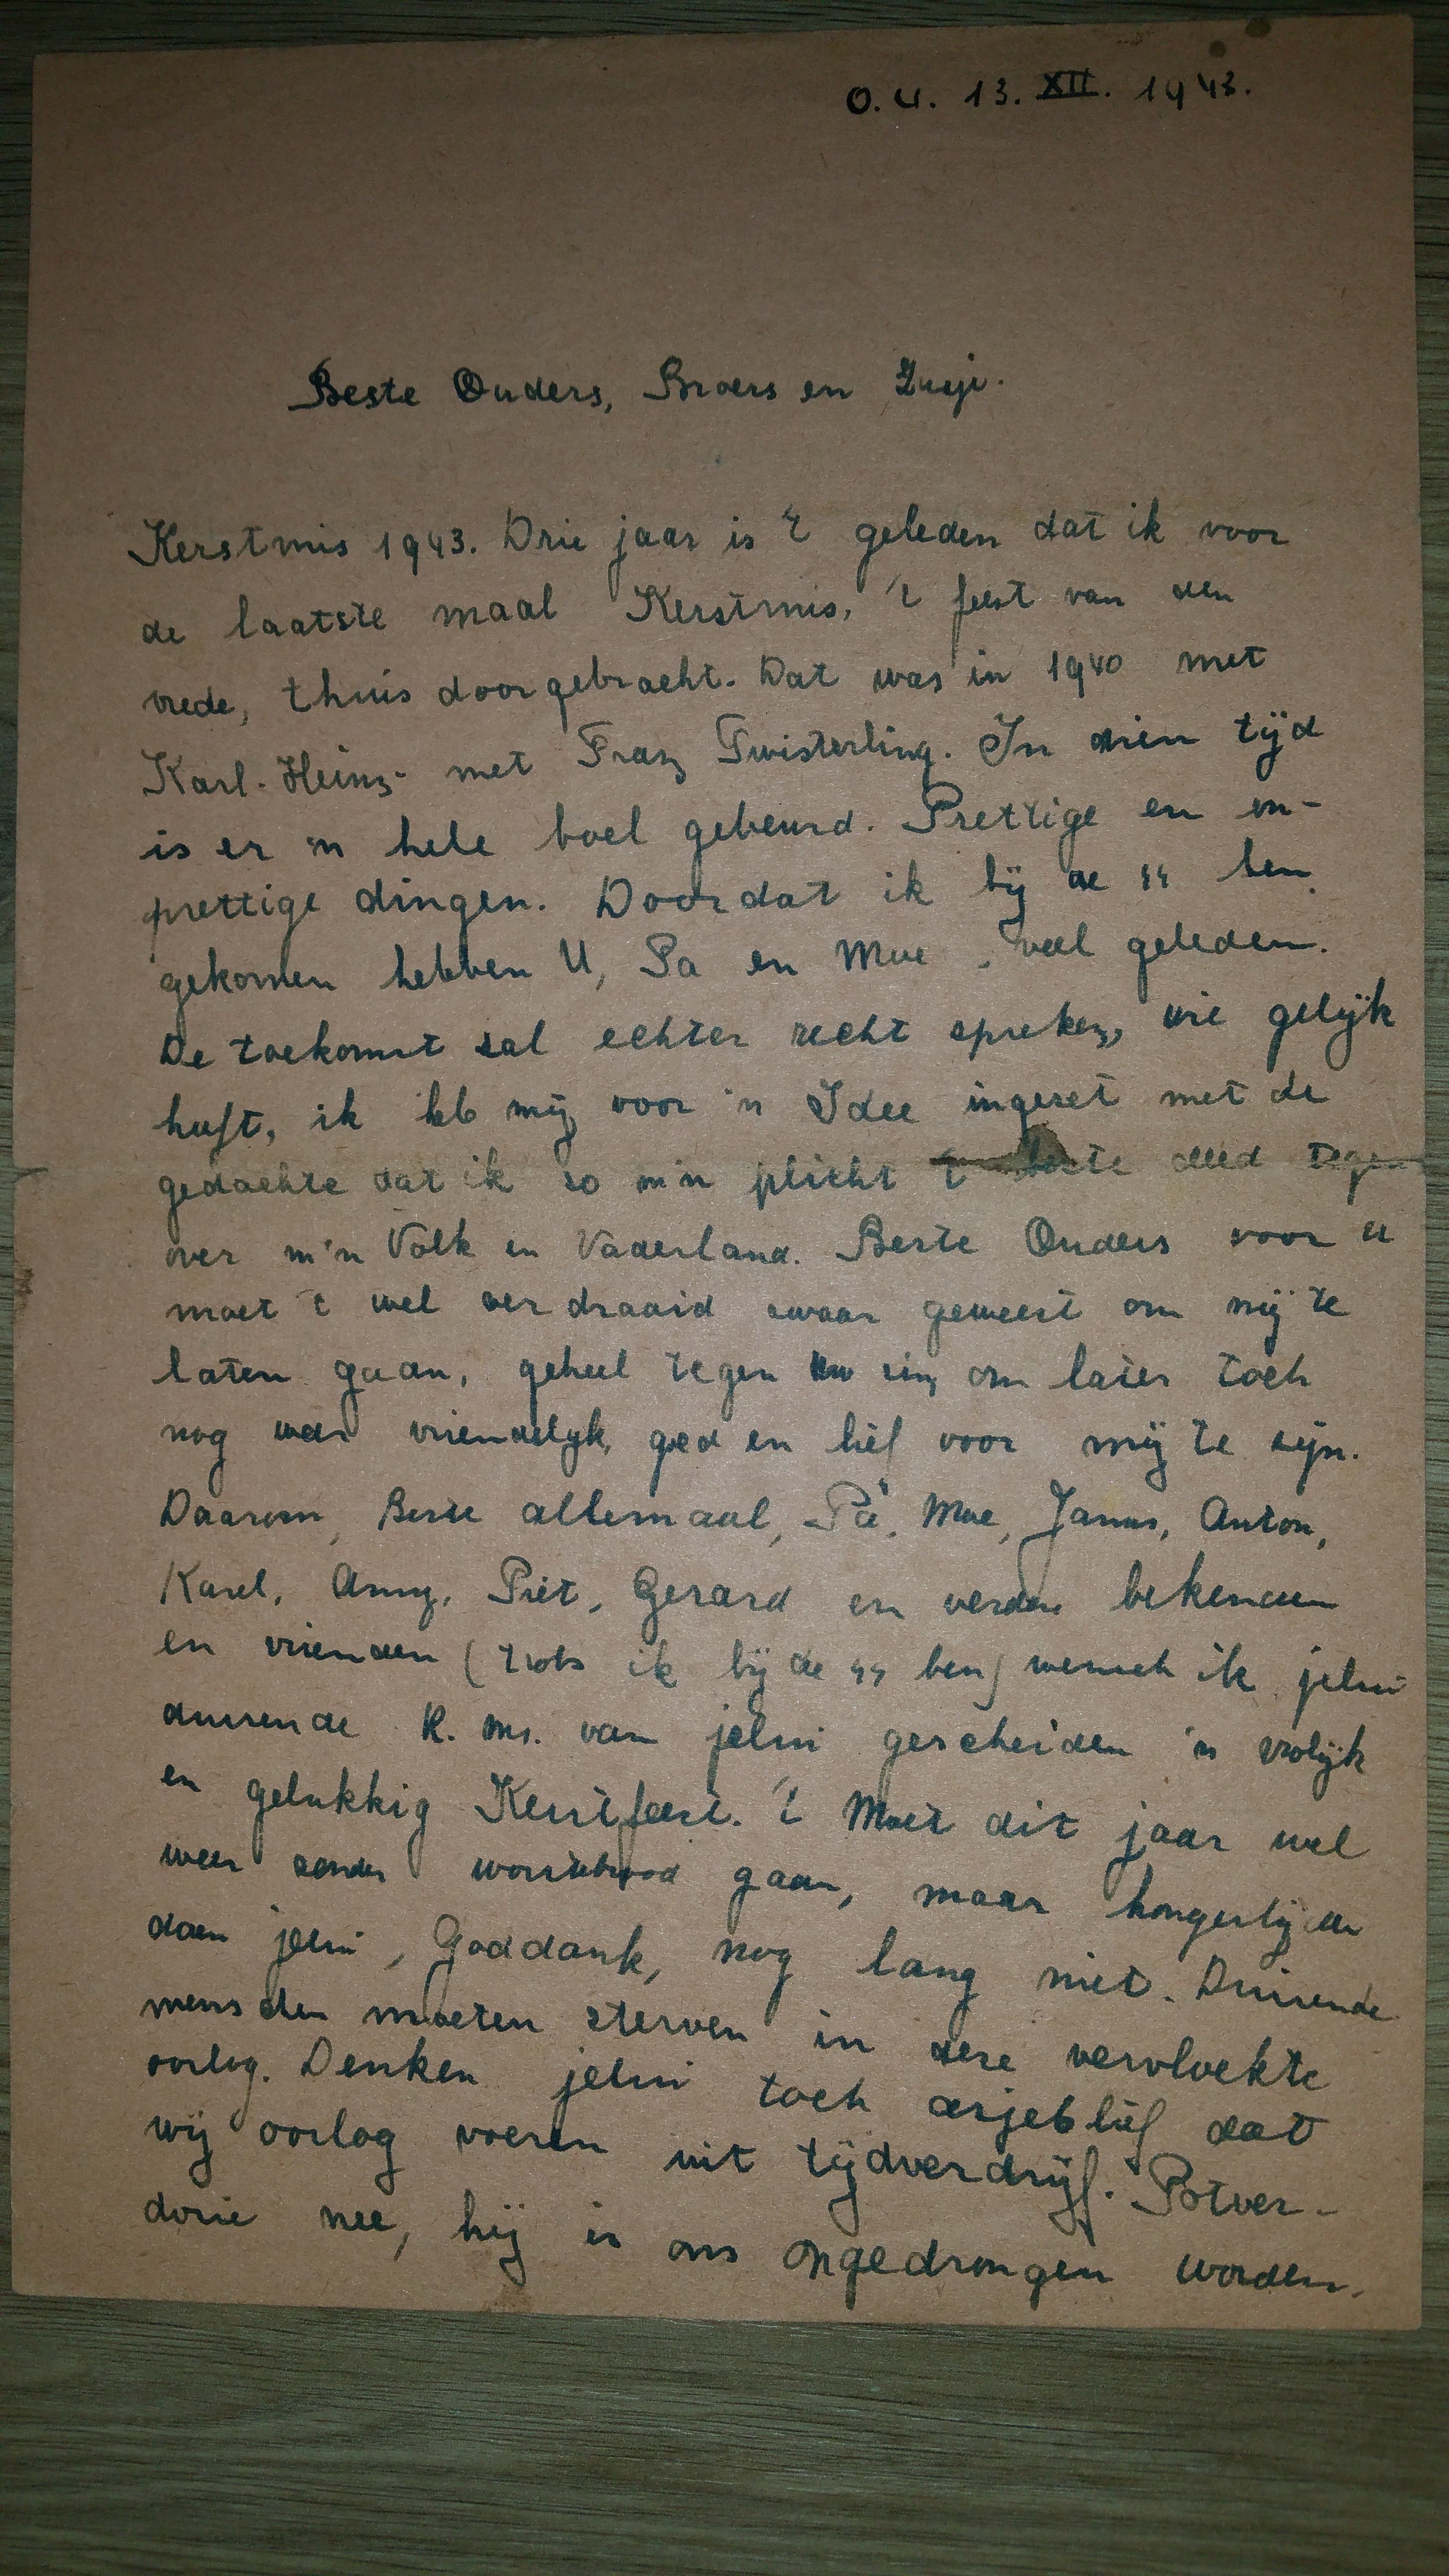 O.U. 13. XII. 1943.
Beste Ouders, Broers en Zusje.
Kerstmis 1943. Drie jaar is 't geleden dat ik voor
de laatste maal Kerstmis, 't feest van den
vrede, thuis doorgebracht. Dat was in 1940 met
Karl-Heinz met Franz Twisterling. In dien tijd
is er 'n hele boel gebeurd. Prettige en on-
prettige dingen. Doordat ik bij de SS ben
gekomen hebben U, Pa en Moe, veel geleden.
De toekomst sal echter recht spreken, wie gelijk
heeft, ik heb mij voor 'n Idee ingeset met de
gedachte dat ik so m'n plicht 't beste deed tegen
over m'n Volk en Vaderland. Beste Ouders voor U
moet 't wel verdraaid swaar geweest om mij te
laten gaan, geheel tegen uw sin, om later toch
nog weer vriendelijk, goed en lief voor mij te sijn.
Daarom, Beste allemaal, Pa, Moe, Janus, Anton,
Karel, Anny, Piet, Gerard en verdere bekenden
en vrienden (trots ik bij de SS ben) wensch ik jelui
duisende K.ms. van jelui gescheiden 'n vrolijk
en gelukkig Kerstfeest. 't Moet dit jaar wel
weer sonder worstebrood gaan, maar hongerlijden
doen jelui, Goddank, nog lang niet. Duisende
menschen moeten sterven in dese vervloekte
oorlog. Denken jelui toch asjeblief dat
wij oorlog voeren uit tijdverdrijf. Potver-
dorie nee, hij is ons opgedrongen worden.